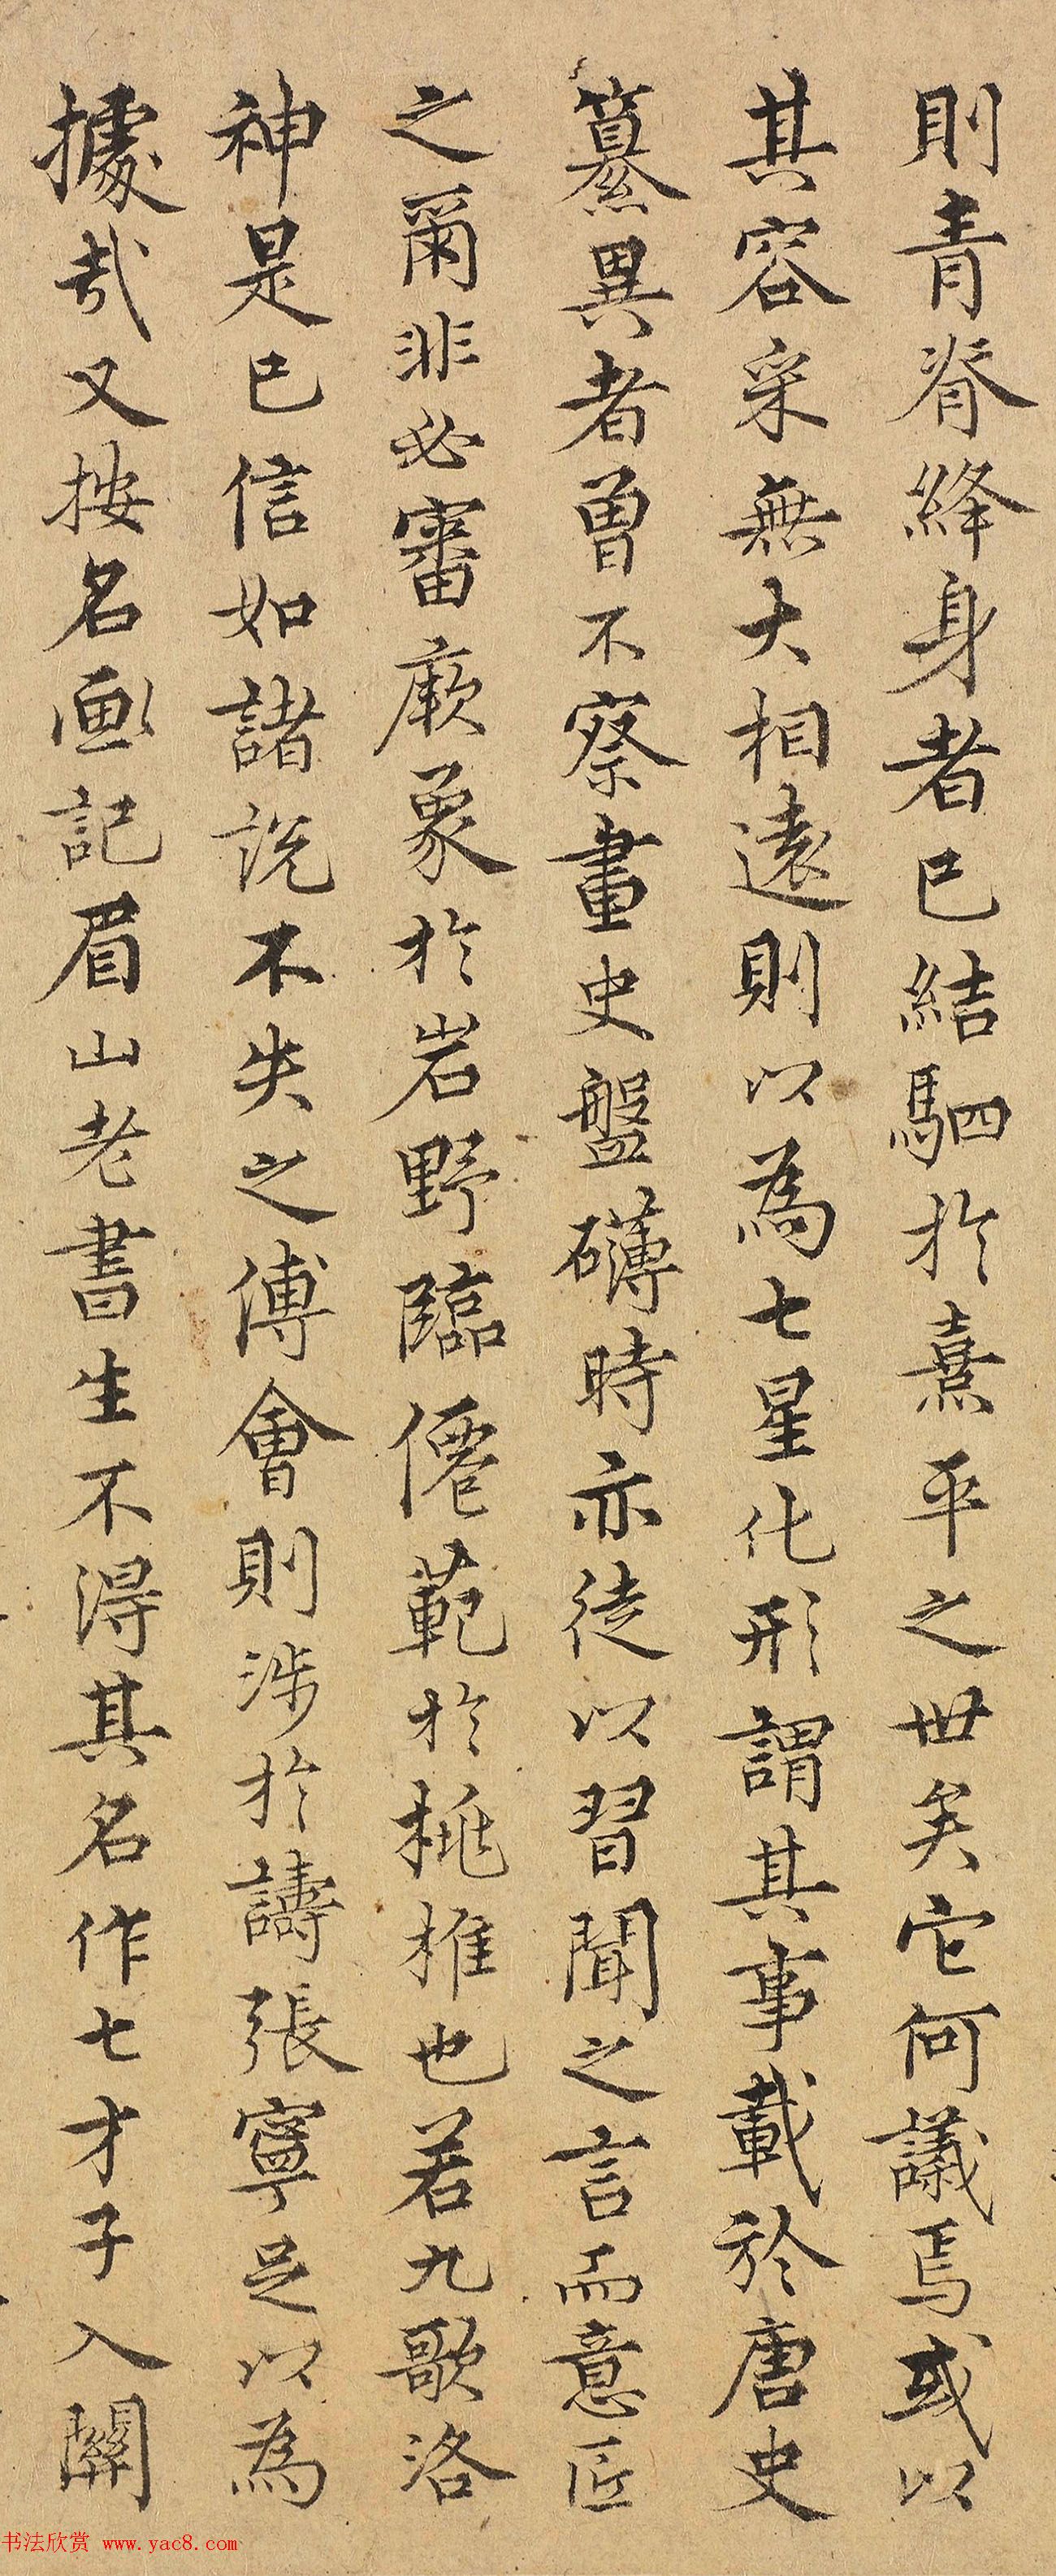 則青脊絳身者已結駟於熹平之世矣它何議焉或以
其容采無大相遠則以為七星化形謂其事載於唐史
纂異者曽不察畫史盤礴時亦徒以習聞之言而意匠
之爾非必審厥象於岩野臨僊範於桃椎也若九歌洛
神是已信如諸説不失之傅會則涉於譸張寧足以為
據哉又按名画記眉山老書生不得其名作七才子入關
书法欣赏 www.yac8.com